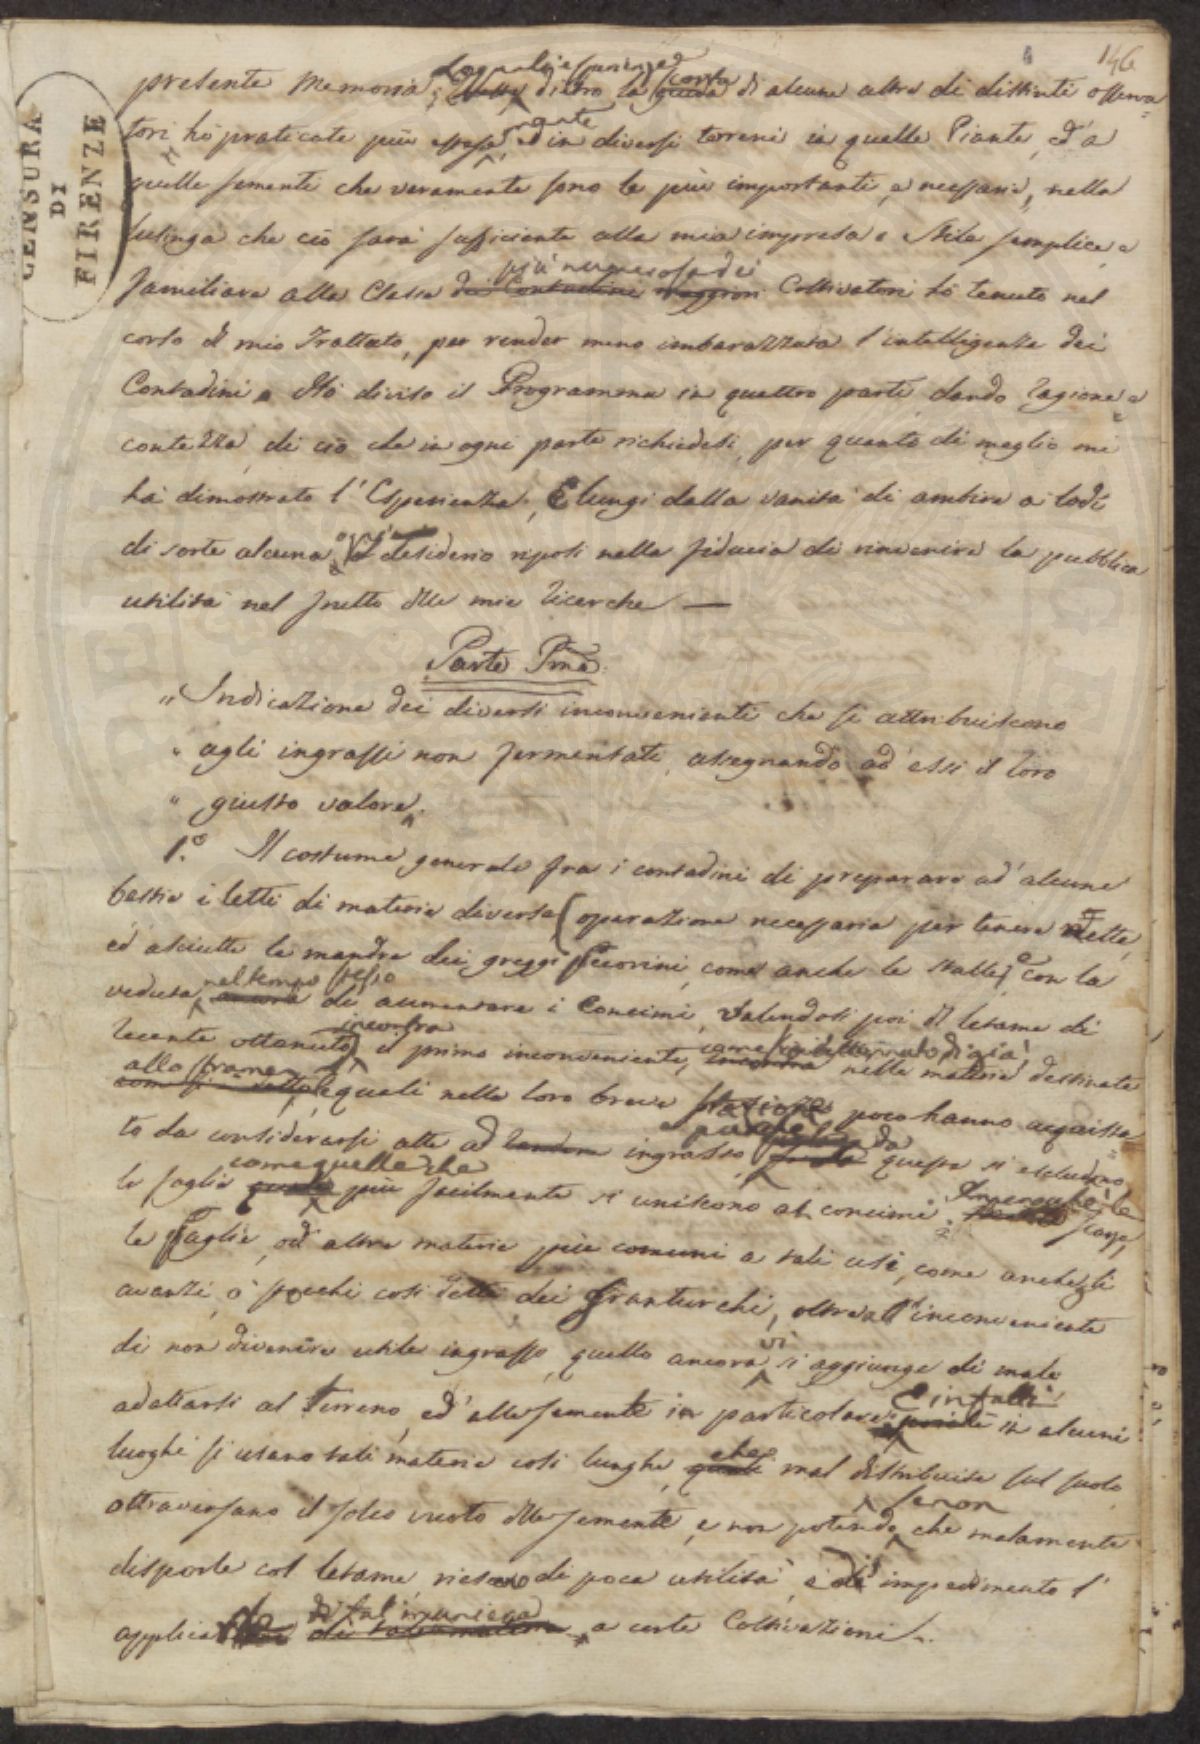 146
CENSURA
DI
FIRENZE
Le quali esperienze scorta
presente Memoria; dietro la guida di alcune altre di distinti osserva=
mente
tori hò praticate più spesse, ed in diversi terreni in quelle Piante, ed a
quelle sementi che veramente sono le più importanti, e necessarie, nella
lusinga che ciò sarà sufficiente alla mia impresa e Stile semplice, e
più numerosa dei
familiare alla Classe dei Contadini maggiori Coltivatori hò tenuto nel
corso del mio Trattato, per render meno imbarazzata l'intelligenza dei
Contadini. Hò diviso il Programma in quattro parti, dando ragione e
contezza di ciò che in ogni parte richiedesi, per quanto di meglio mi
ha dimostrato l'Esperienza, E lungi dalla vanità di ambire a lodi
di sorte alcuna, ogni desiderio riposi nella fiducia di rinvenire la pubblica
utilità nel frutto delle mie ricerche —
Parte Pma
" Indicazione dei diversi inconvenienti che si attribuiscono
" agli ingrassi non fermentati, assegnando ad essi il loro
" giusto valore.
1.° Il costume generale fra i contadini di preparare ad alcune
bestie i letti di materie diverse (operazione necessaria per tenere nette,
ed asciutte le mandre dei greggi Pecorini, come anche le stalle) e con la
nel tempo stesso
veduta ancora di aumentare i Concimi, valendosi poi del letame di
incontra come si è detto di già
recente ottenuto, il primo inconveniente, incontra nelle materie destinate
allo strame
come si è detto, le quali nella loro breve stazione poco hanno acquista=
e purché da
to da considerarsi atte ad rendere ingrasso, queste si escludino
come quelle che
le foglie quali più facilmente si uniscono ai concimi. Imperocchè le
le Paglie, od altre materie più comuni a tali usi, come anche gli
avanzi, o stecchi così detti dei Granturchi, oltre all'inconveniente
vi
di non divenire utile ingrasso, quello ancora si aggiunge di male
E infatti
adattarsi al Terreno, ed alle sementi in particolare, poiché in alcuni
che
luoghi si usano tali materie così lunghe, quali mal distribuite sul suolo
se non
attraversano il solco vuoto delle sementi, e non potendo che malamente
disporle col letame, riescono di poca utilità, e di impedimento l'
di tal maniera
applicarle di tale materia, a certe Coltivazioni.